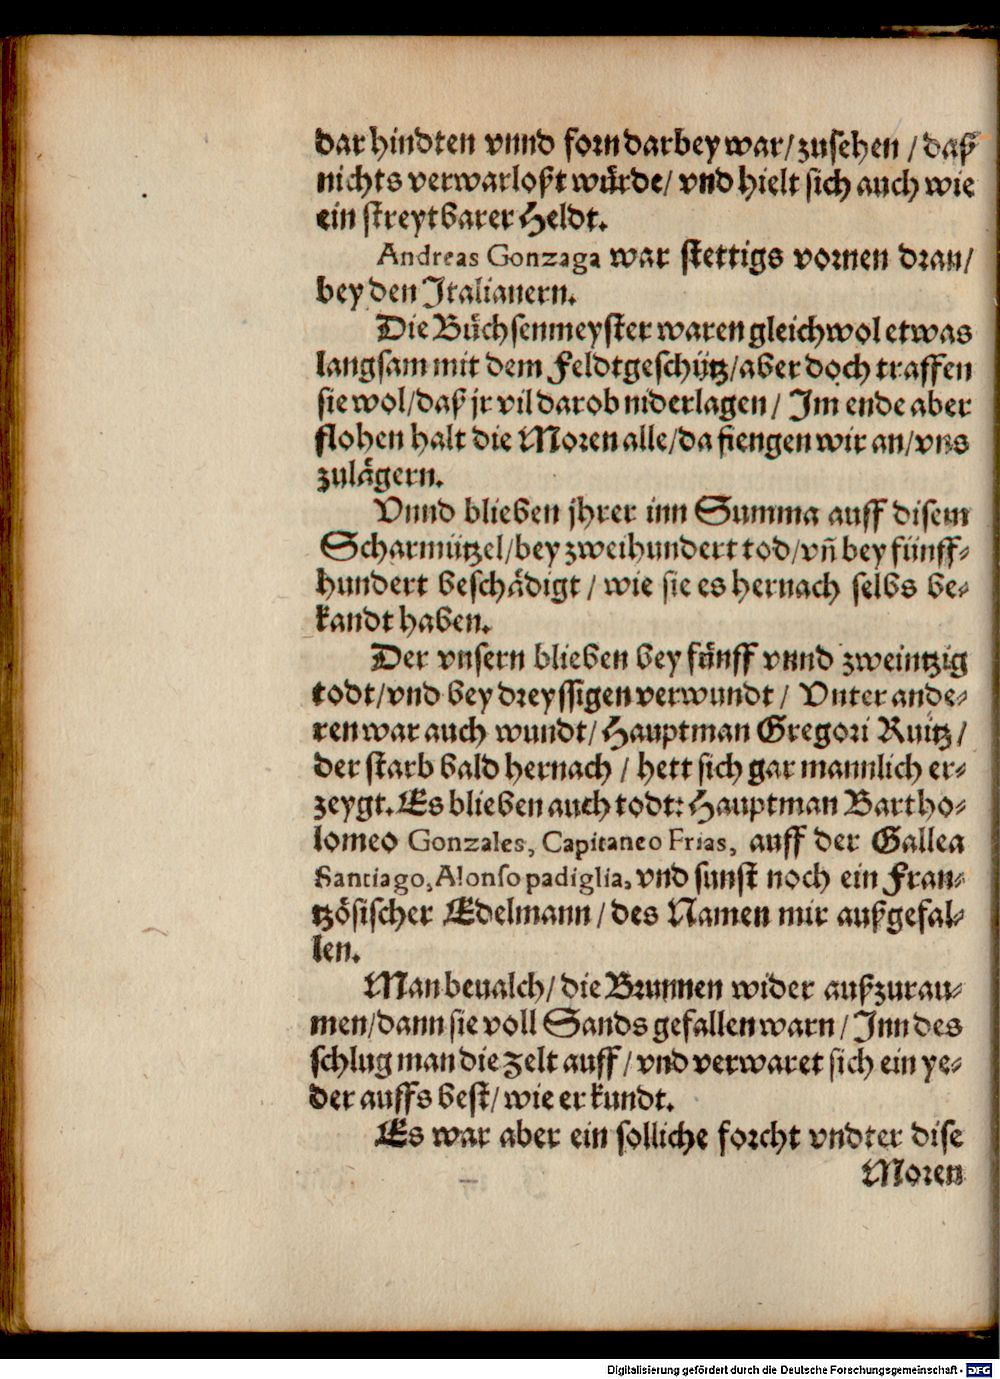 dar hindten vnnd forn darbey war/ zusehen / daß
nichts verwarloßt wuͤrde/ vnd hielt sich auch wie
ein streytbarer Heldt.
Andreas Gonzaga war stettigs vornen dran/
bey den Italianern.
Die Buͤchsenmeyster waren gleichwol etwas
langsam mit dem Feldtgeschütz/ aber doch traffen
sie wol/ daß jr vil darob niderlagen / Im ende aber
flohen halt die Moren alle/ da fiengen wir an/ vns
zulaͤgern.
Vnnd blieben jhrer inn Summa auff disem
Scharmützel/ bey zweihundert tod/ vñ bey fünff-
hundert beschaͤdigt / wie sie es hernach selbs be-
kandt haben.
Der vnsern blieben bey fuͤnff vnnd zweintzig
todt/ vnd bey dreyssigen verwundt / Vnter ande-
ren war auch wundt/ Hauptman Gregori Ruitz /
der starb bald hernach / hett sich gar mannlich er-
zeygt. Es blieben auch todt: Hauptman Bartho-
lomeo Gonzales, Capitaneo Frias, auff der Gallea
Santiago, Alonso padiglia, vnd sunst noch ein Fran-
tzoͤsischer Edelmann / des Namen mir außgefal-
len.
Man beualch/ die Brunnen wider außzurau-
men/ dann sie voll Sands gefallen warn / Inn des
schlug man die zelt auff / vnd verwaret sich ein ye-
der auffs best/ wie er kundt.
Es war aber ein solliche forcht vndter dise
Moren
Digitalisierung gefördert durch die Deutsche Forschungsgemeinschaft - DFG